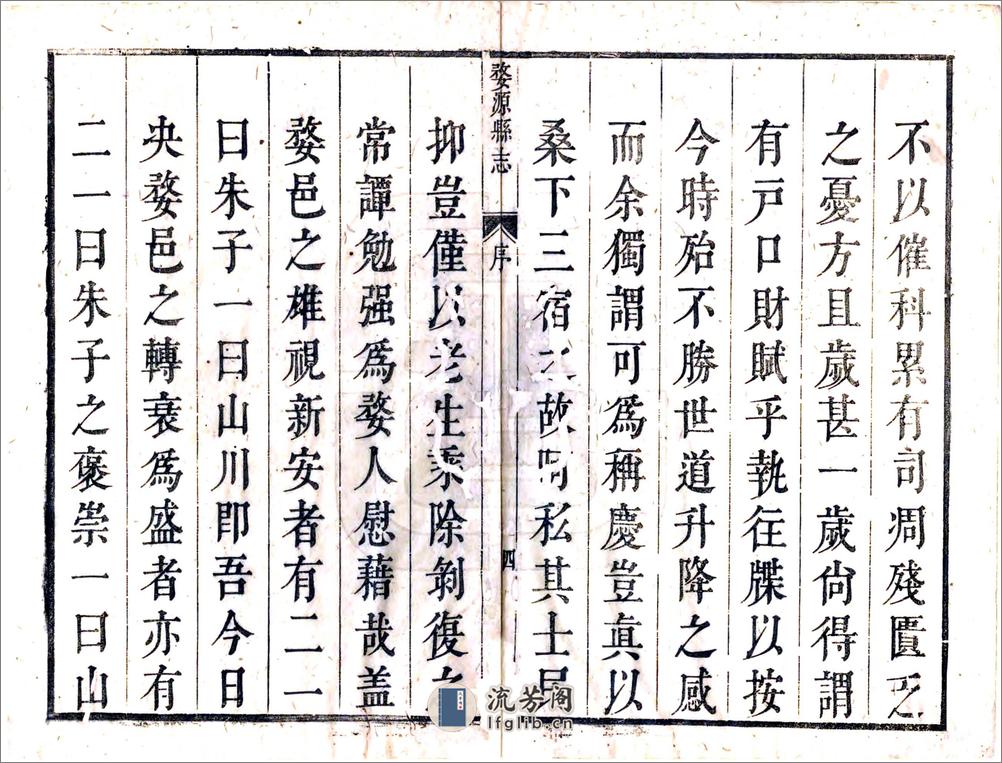 不以催科累有司凋殘匱乏
之憂方且歲甚一歲尙得謂
有戸口財賦乎執往牒以按
今時殆不勝世道升降之感
而余獨謂可爲稱慶豈眞以
桑下三宿之故阿私其士民
婺源縣志 序 四
抑豈僅以老生乘除剝復之
常譚勉强爲婺人慰藉哉盖
婺邑之雄視新安者有二一
曰朱子一曰山川卽吾今日
央婺邑之轉衰爲盛者亦有
二一曰朱子之褒崇一曰山
流芳阁
lfglib.cn